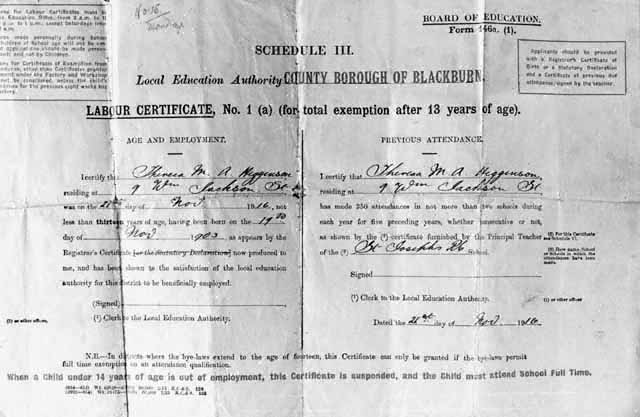 No 16
BOARD OF EDUCATION.
Form 146a. (1).
for Labour Certificates must
Education Office, from 9 a.m. to
made personally during School
Children of School age will not be
application should be made
and not by Children.
for Certificates of Exemption from
under the Factory and Workshop
Applicants should be provided
with a Registrar's Certificate of
Birth or a Statutory Declaration
and a Certificate of previous
attendance, signed by the teacher.
SCHEDULE III.
Local Education Authority COUNTY BOROUGH OF BLACKBURN.
LABOUR CERTIFICATE, No. 1 (a) (for total exemption after 13 years of age).
AGE AND EMPLOYMENT.
I certify that Theresa M. A Higginson
residing at 9 Wm Jackson St
was on the day of Nov 1916, not
less than thirteen years of age, having been born on the 19
day of Nov 1903 as appears by the
Registrar's Certificate [or the Statutory Declaration] now produced to
me, and has been shown to the satisfaction of the local education
authority for this district to be beneficially employed.
(Signed)
(¹) Clerk to the Local Education Authority.
(1) or other officer.
PREVIOUS ATTENDANCE.
I certify that Theresa M A Higginson
residing at 9 Wm Jackson St
has made 350 attendances in not more than two schools during
each year for five preceding years, whether consecutive or not,
as shown by the (²) certificate furnished by the Principal Teacher
of the (³) St Josephs RC School.
Signed
(¹) Clerk to the Local Education Authority.
Dated the 21st day of Nov 1916
(2) For this Certificate
see Schedule VI.
(3) Here name School
or Schools in which the
attendances have been
made.
(1) or other officer.
N.B.—In districts where the bye-laws extend to the age of fourteen, this Certificate can only be granted if the bye-laws permit
full time exemption on an attendance qualification.
When a Child under 14 years of age is out of employment, this Certificate is suspended, and the Child must attend School Full Time.